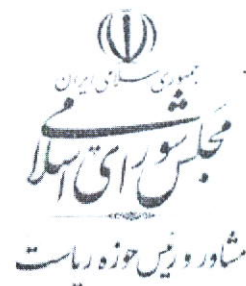 جمهوری اسلامی ایران
مجلس شورای اسلامی
مشاور و رئیس حوزه ریاست